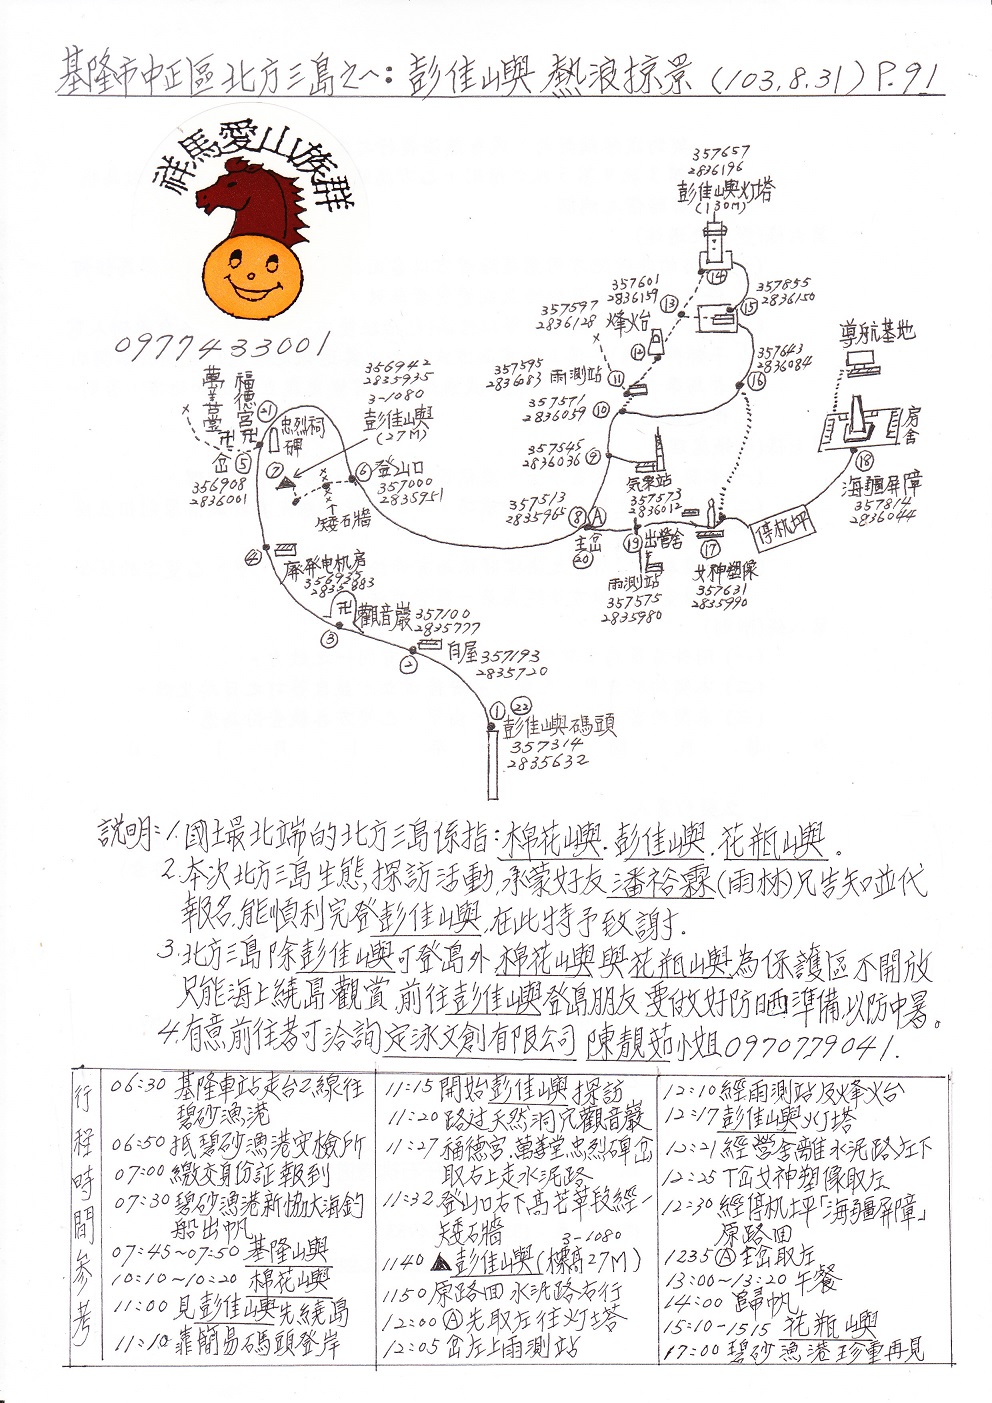 基隆市中正區北方三島之八:彭佳山嶼熱波掠景(103.8.31)P.91
祥馬愛山族群
0977433001
357657
2836196
彭佳山嶼灯塔
(130M)
⑭
357601
2836159
⑬
357855
2836150
⑮
357597
2836128
烽火台
⑫
導航基地
357643
2836084
⑯
357595
2836083
雨測站
⑪
357571
2836059
⑩
房舍
⑱
海疆屏障
357814
2836044
356942
2835935
3-1080
彭佳山嶼
(27M)
萬善堂
福德宮
㉑
忠烈祠碑
卍
卍
岔⑤
356908
2836001
⑦
⑥登山口
357000
2835951
矮石牆
357545
2836036
⑨
気象站
357573
2836012
357513
2835965
⑧Ⓐ
主岔
⑳
⑲出營舍
⑰
停机坪
雨測站
357575
2835980
女神塑像
357631
2835990
④
廢発电机房
356935
2835883
卍
觀音巖
357100
2835777
③
②
白屋
357193
2835720
①㉒
彭佳山嶼碼頭
357314
2835632
説明:1.國土最北端的北方三島係指:棉花山嶼.彭佳山嶼.花瓶山嶼。
2.本次北方三島生態探訪活動,承蒙好友潘裕霖(雨林)兄告知並代
報名,能順利完登彭佳山嶼,在此特予致謝.
3.北方三島除彭佳山嶼可登島外,棉花山嶼與花瓶山嶼為保護區不開放
只能海上繞島觀賞,前往彭佳山嶼登島朋友要做好防晒準備,以防中暑。
4.有意前往者可洽詢定泳文創有限公司 陳靚茹小姐0970779041.
行程時間參考
06:30 基隆車站走台2線往
碧砂漁港
06:50 抵碧砂漁港安檢所
07:00 繳交身份証報到
07:30 碧砂漁港新協大海釣
船出帆
07:45~07:50 基隆山嶼
10:10~10:20 棉花山嶼
11:00 見彭佳山嶼先繞島
11:10 靠簡易碼頭登岸
11:15 開始彭佳山嶼探訪
11:20 路过天然洞穴觀音巖
11:27 福德宮.萬善堂.忠烈碑岔
取右上走水泥路
11:32 登山口右下高芒草段經一
矮石牆
3-1080
1140 ▲彭佳山嶼(標高27M)
1150 原路回水泥路右行
12:00 Ⓐ先取左往灯塔
12:05 岔左上雨測站
12:10 經雨測站及烽火台
12:17 彭佳山嶼灯塔
12:21 經營舍離水泥路左下
12:25 T岔女神塑像取左
12:30 經停机坪「海疆屏障」
原路回
1235 Ⓐ主岔取左
13:00~13:20 午餐
14:00 歸帆
15:10-1515 花瓶山嶼
17:00 碧砂漁港珍重再見